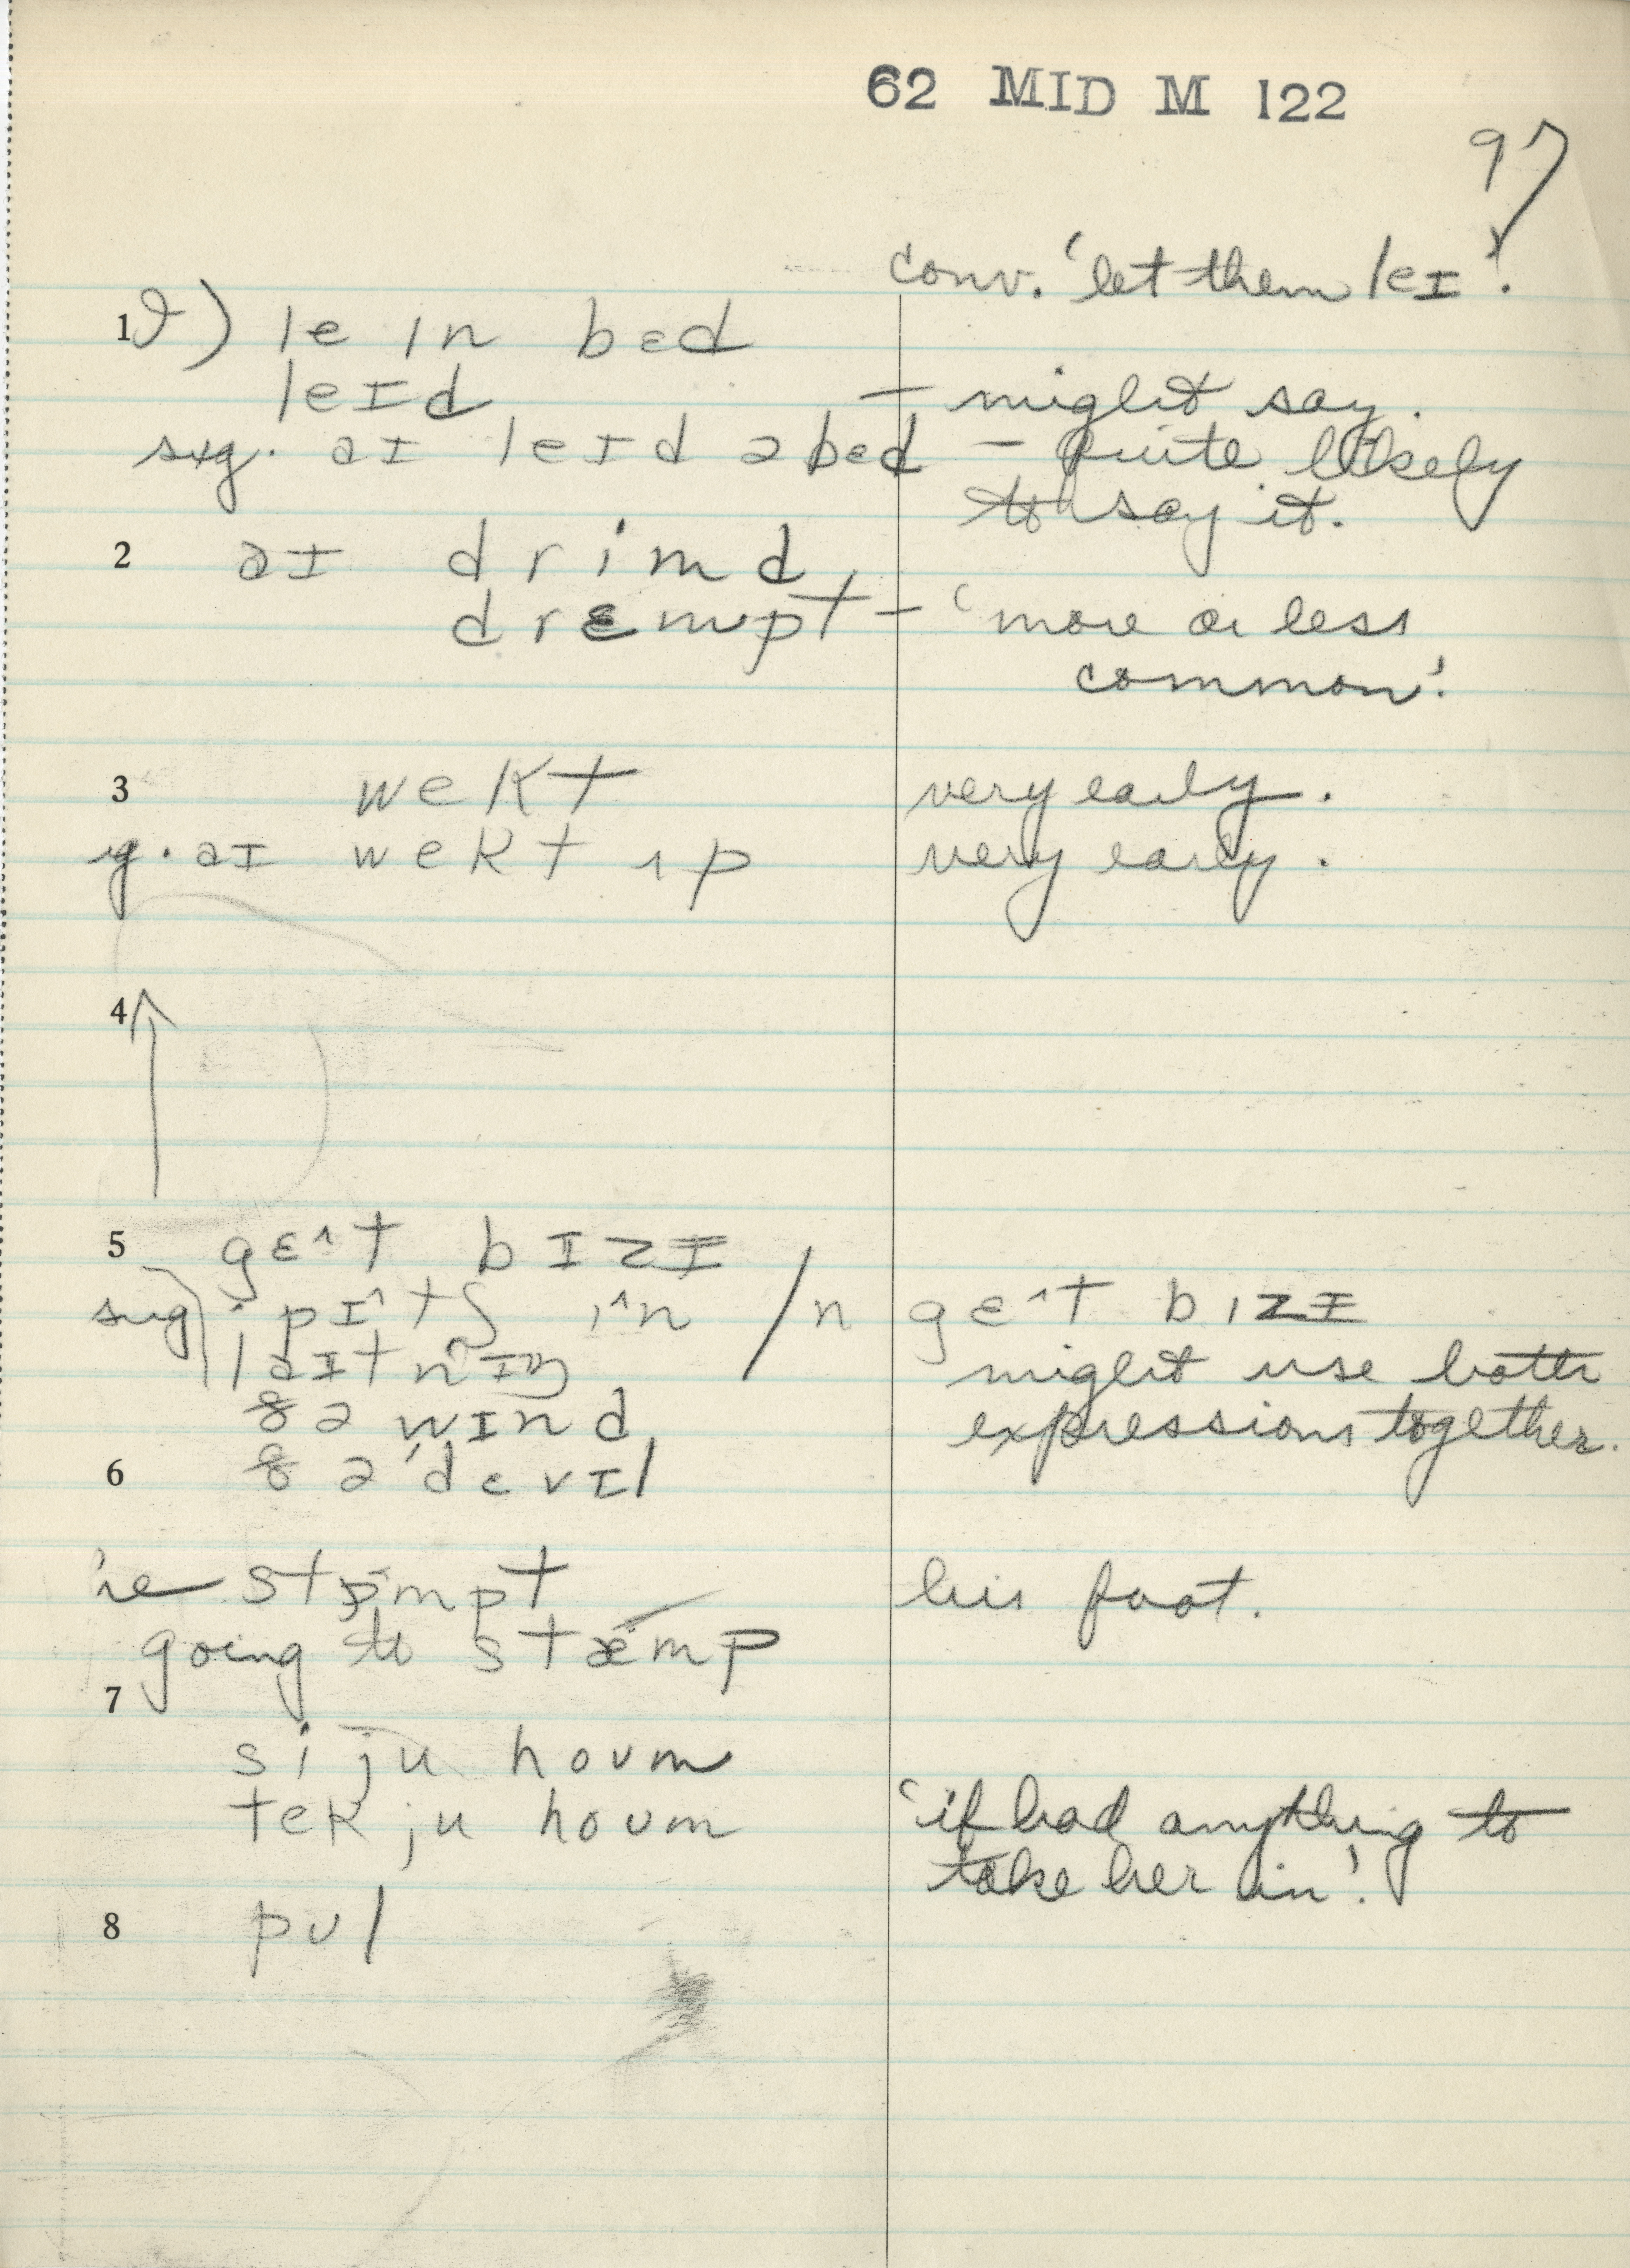 62 MID M 122
97
conv. 'let them leɪ'.
1 ) le ɪn bɛd
leɪd — might say.
sug. aɪ leɪd əbɛd — quite likely
to say it.
2 aɪ drimd
drɛmpt — 'more or less
common'.
3 wekt very early.
sug. aɪ wekt ʌp very early.
4 ↑
5 gɛ^t bɪzɪ
sug. pɪ^tʃ ɪ^n / n gɛ^t bɪzɪ
laɪtnɪŋ might use both
ðə wɪnd expressions together.
6 ðə 'devɪl
he stɒmpt his foot.
going to stæmp
7
si ju houm
tek ju houm 'if had anything to
take her in'.
8 pul